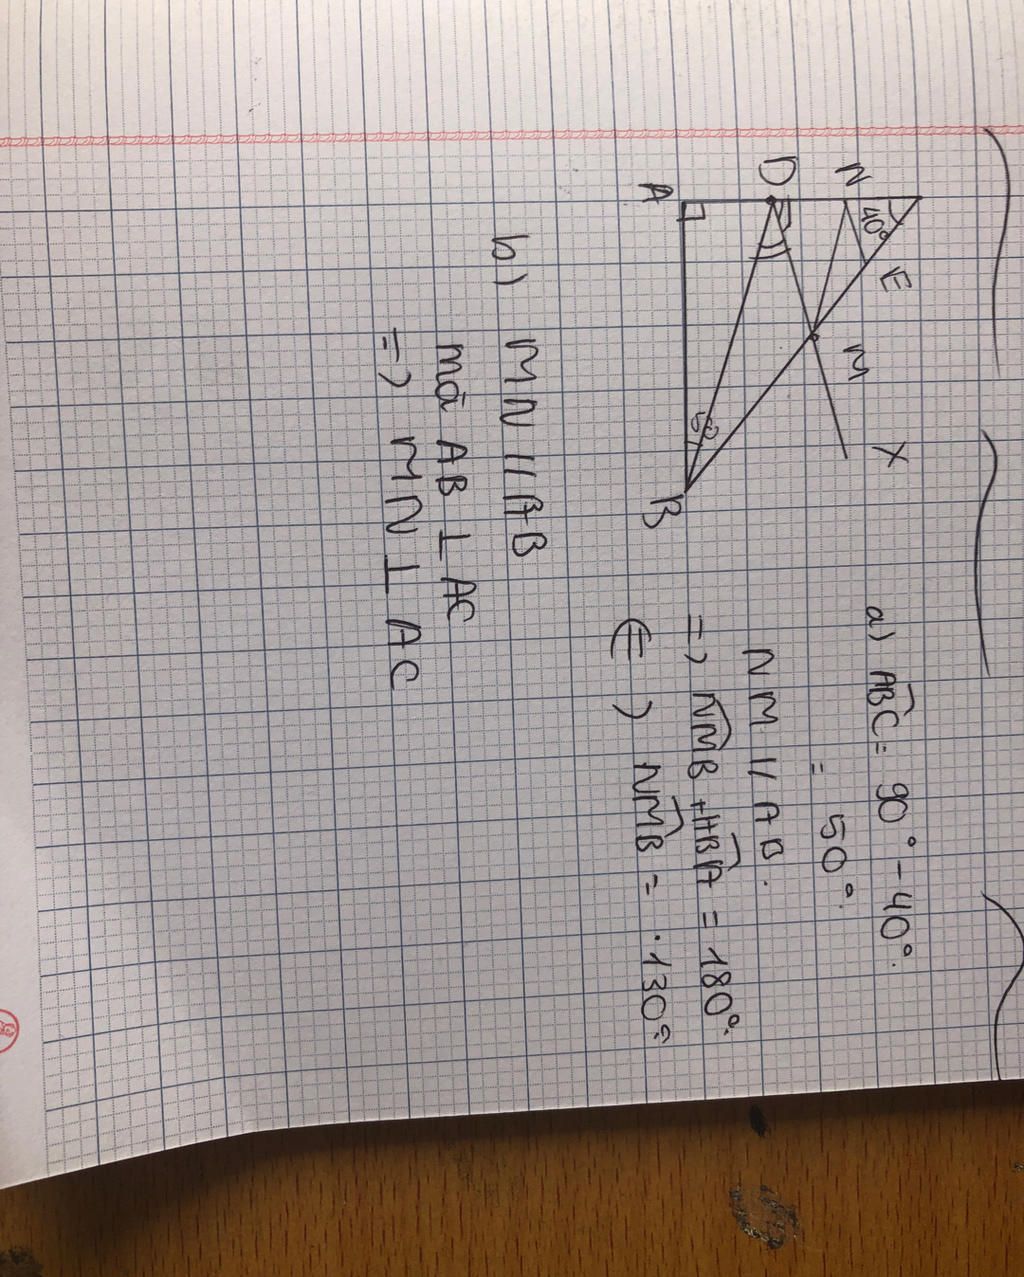 N
40°
E
D
M
X
A
B
a) ABC = 90° - 40°.
= 50°.
NM // AB.
=> NMB + HBA = 180°.
NMB = 130°.
b) MN // AB
mà AB ⊥ AC
=> MN ⊥ AC